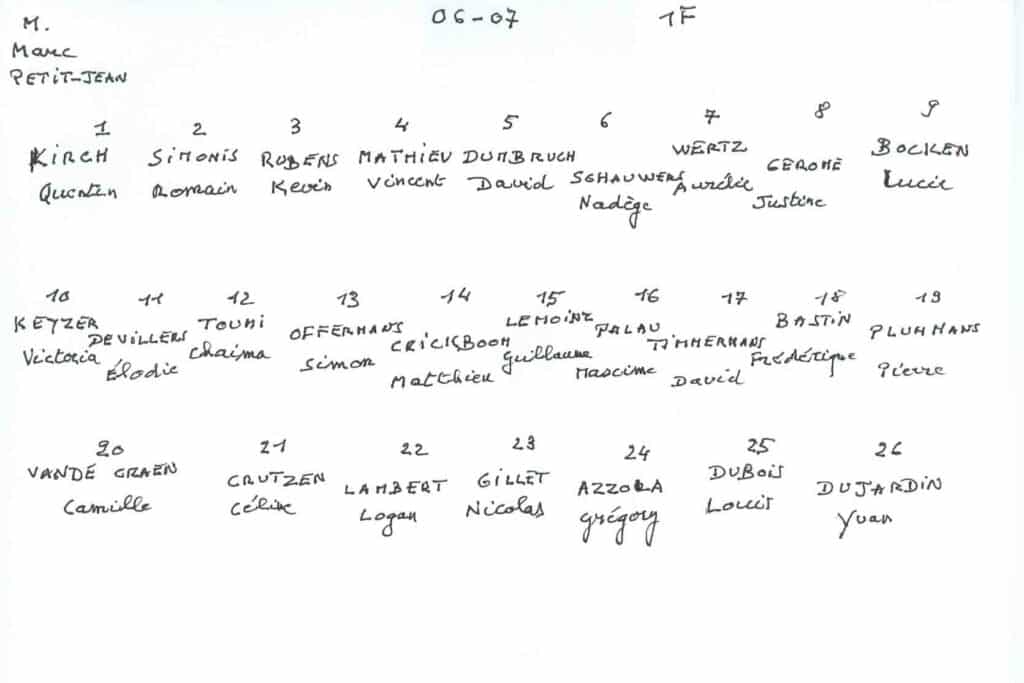 M. 06-07 1F
Marc
PETIT-JEAN
1 2 3 4 5 6 7 8 9
KIRCH SIMONIS RUBENS MATHIEU DUMBRUCH SCHAUWERS WERTZ GEROME BOCKEN
Quentin Romain Kevin Vincent David Nadège Aurélie Justine Lucie
10 11 12 13 14 15 16 17 18 19
KEYZER DEVILLERS TOUHI OFFERMANS CRICKBOOM LEMOINE PALAU TIMMERMANS BASTIN PLUMMANS
Victoria Élodie Chaima Simon Matthieu Guillaume Maxime David Frédérique Pierre
20 21 22 23 24 25 26
VANDE GRAEN CRUTZEN LAMBERT GILLET AZZOLA DUBOIS DUJARDIN
Camille Céline Logan Nicolas Grégory Louis Yvan